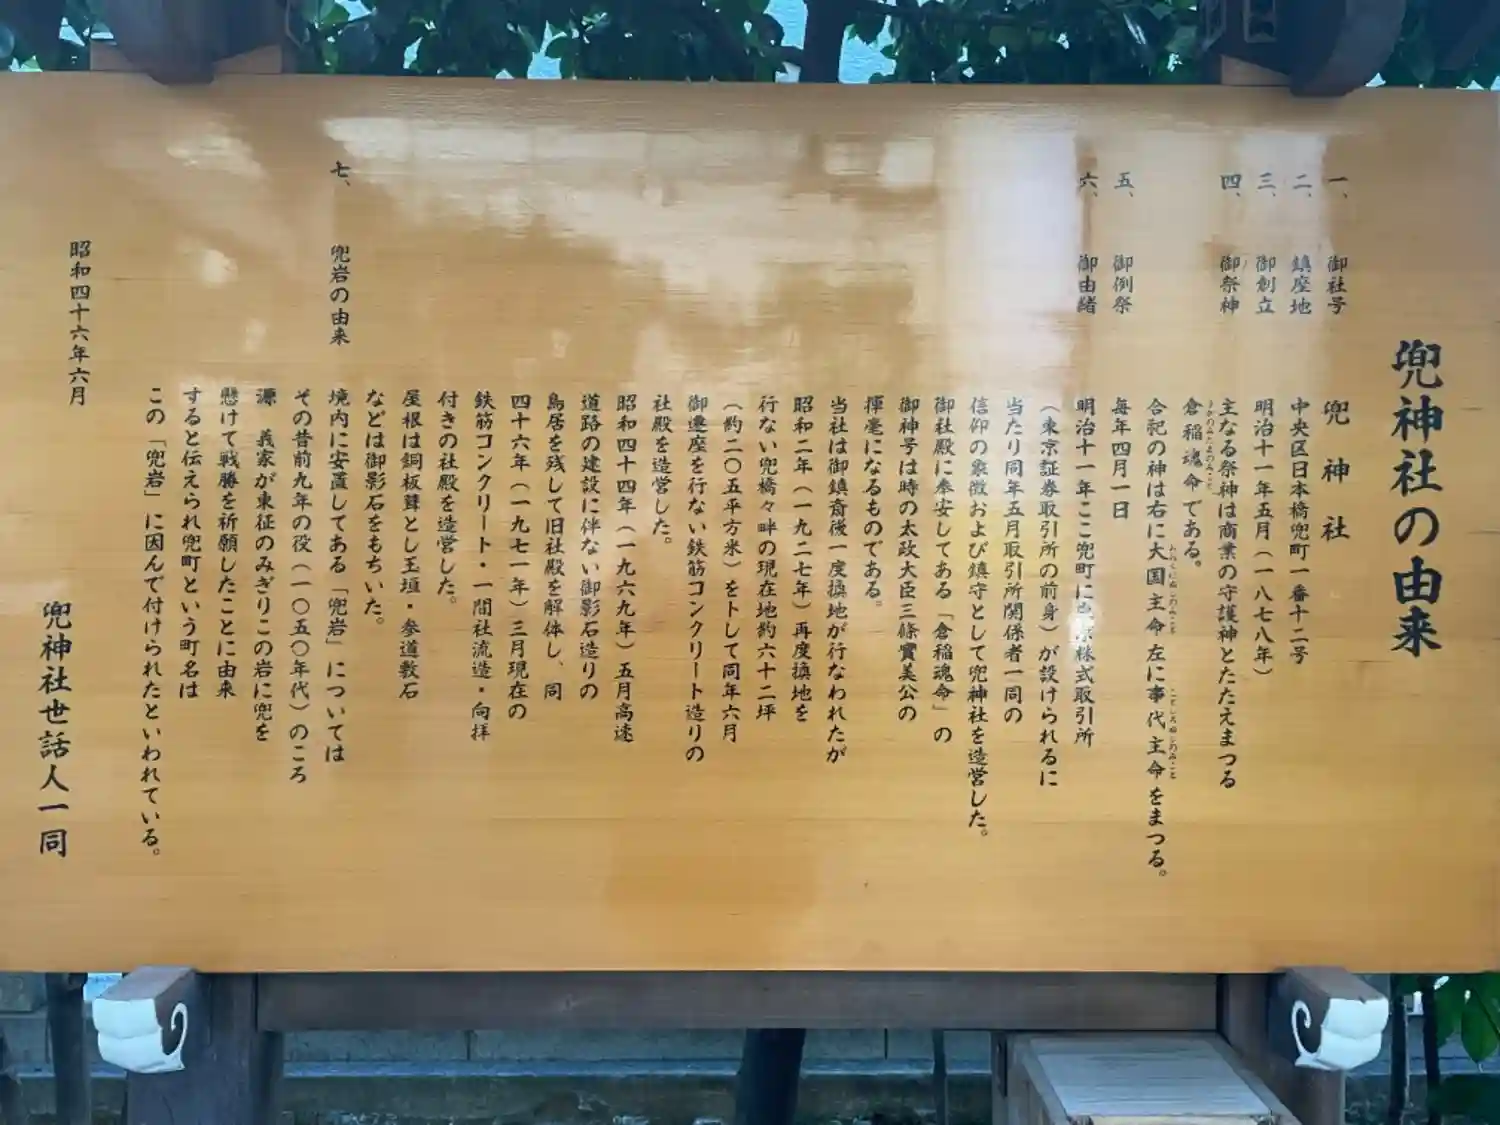 兜神社の由来
一、 御社号 兜神社
二、 鎮座地 中央区日本橋兜町一番十二号
三、 御創立 明治十一年五月(一八七八年)
四、 御祭神 主なる祭神は商業の守護神とたたえまつる
倉稲魂命である。
合祀の神は右に大国主命 左に事代主命をまつる。
五、 御例祭 毎年四月一日
六、 御由緒 明治十一年ここ兜町に東京株式取引所
(東京証券取引所の前身)が設けられるに
当たり同年五月取引所関係者一同の
信仰の象徴および鎮守として兜神社を造営した。
御社殿に奉安してある「倉稲魂命」の
御神号は時の太政大臣三條實美公の
揮毫になるものである。
当社は御鎮斎後一度換地が行なわれたが
昭和二年(一九二七年)再度換地を
行ない兜橋々畔の現在地約六十二坪
(約二〇五平方米)をトして同年六月
御遷座を行ない鉄筋コンクリート造りの
社殿を造営した。
昭和四十四年(一九六九年)五月高速
道路の建設に伴ない御影石造りの
鳥居を残して旧社殿を解体し、同
四十六年(一九七一年)三月現在の
鉄筋コンクリート・一間社流造・向拝
付きの社殿を造営した。
屋根は銅板葺とし玉垣・参道敷石
などは御影石をもちいた。
七、 兜岩の由来 境内に安置してある「兜岩」については
その昔前九年の役(一〇五〇年代)のころ
源 義家が東征のみぎりこの岩に兜を
懸けて戦勝を祈願したことに由来
すると伝えられ兜町という町名は
この「兜岩」に因んで付けられたといわれている。
昭和四十六年六月
兜神社世話人一同